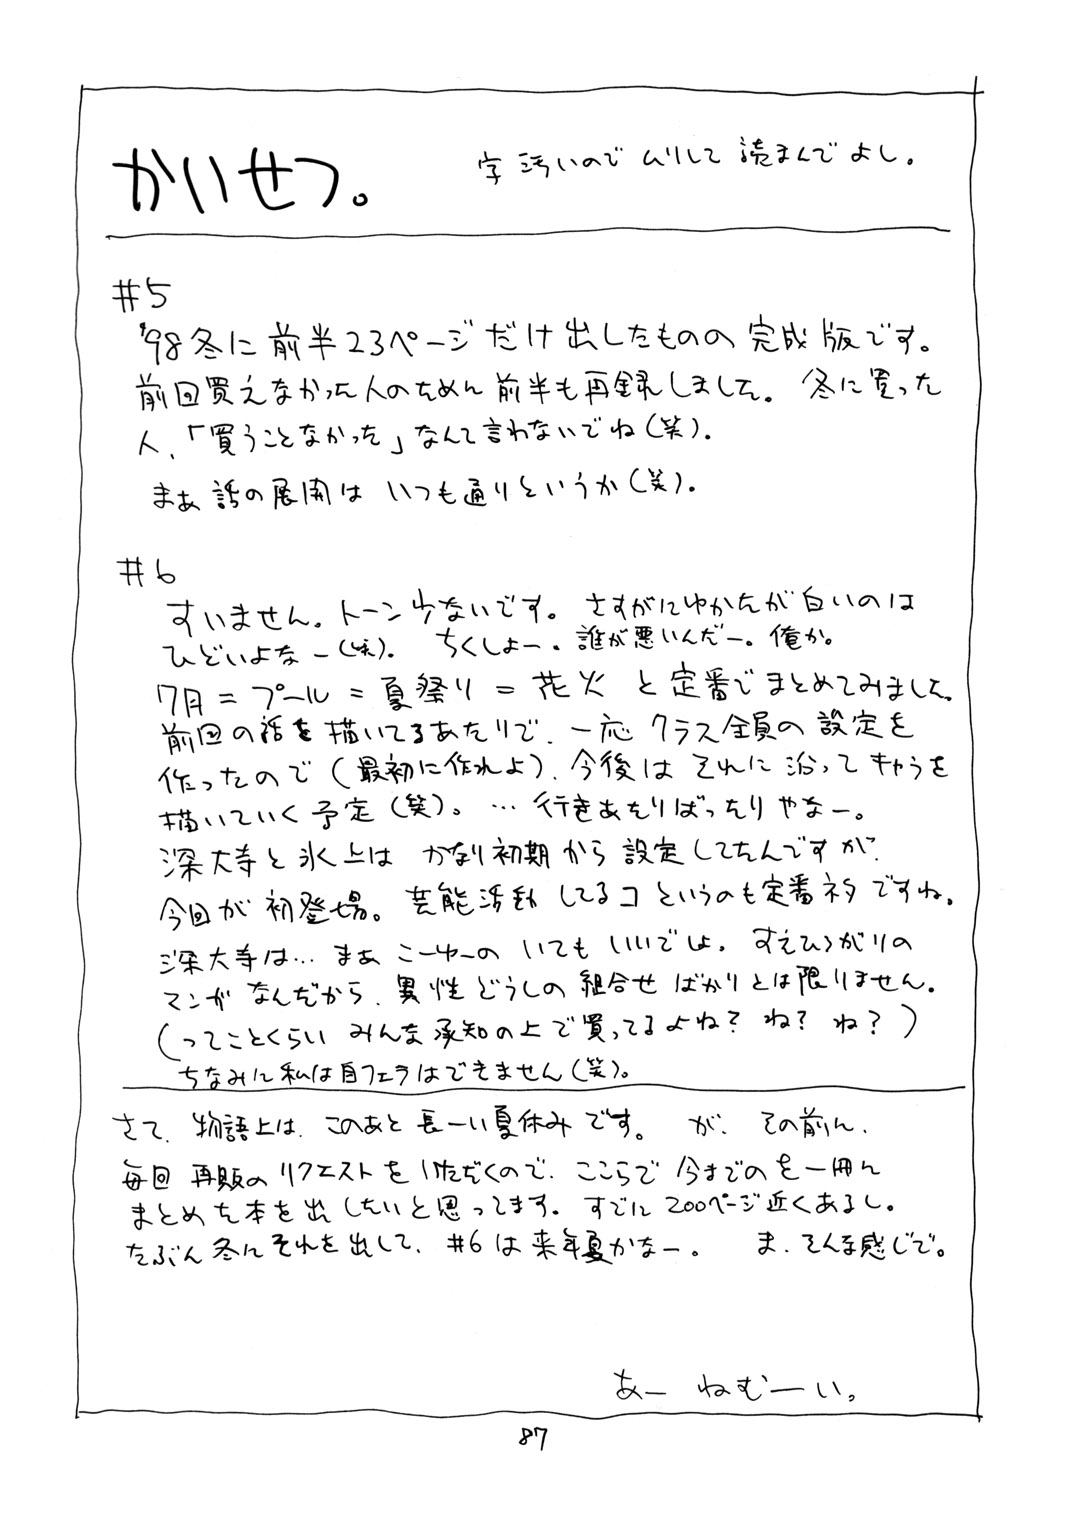 かいせつ。
字汚いので ムリして 読まんでよし。
#5
'98冬に前半23ページだけ出したものの完成版です。
前回買えなかった人のために前半も再録しました。 冬に買った
人、「買うことなかった」なんて言わないでね(笑)。
まぁ話の展開は いつも通りというか(笑)。
#6
すいません。トーン少ないです。 さすがにゆかたが白いのは
ひどいよなー(笑)。 ちくしょー。誰が悪いんだー。俺か。
7月=プール=夏祭り=花火 と定番でまとめてみました。
前回の話を描いてるあたりで、一応クラス全員の設定を
作ったので(最初に作れよ)、今後は それに沿ってキャラを
描いていく予定(笑)。…行きあたりばったりやなー。
深大寺と氷上は かなり初期から設定してたんですが、
今回が初登場。 芸能活動してるコというのも定番ネタですね。
深大寺は… まぁ こーゆーの いても いいでしょ。 すえひろがりの
マンガ なんだから、男性どうしの組合せばかりとは限りません。
(ってことくらい みんな承知の上で買ってるよね? ね? ね?)
ちなみに私は自フェラはできません(笑)。
さて、物語上は、このあと長ーい夏休みです。 が、その前に、
毎回 再販のリクエストをいただくので、ここらで今までのを一冊に
まとめた本を出したいと思ってます。すでに200ページ近くあるし。
たぶん冬にそれを出して、#6は来年夏かなー。 ま、そんな感じで。
あー ねむーい。
87